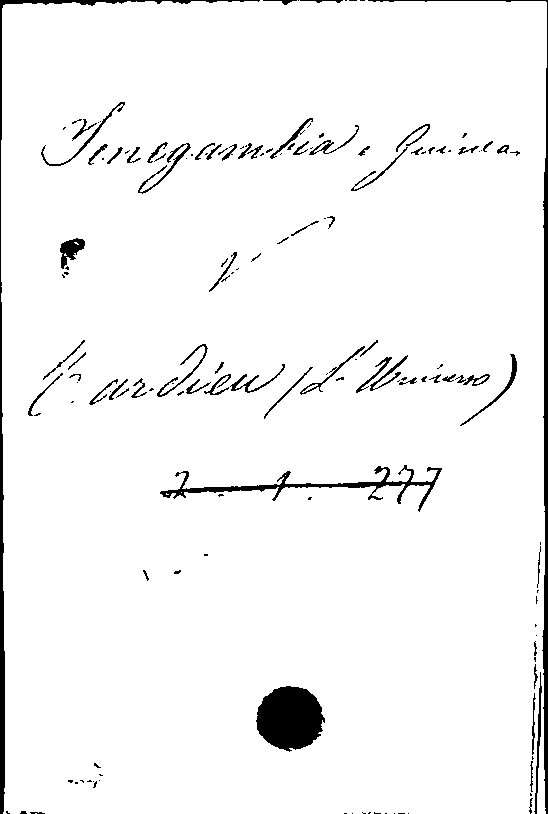 Senegambia e Guinea
V.
Tardieu (L' Univers)
2. 1. 277